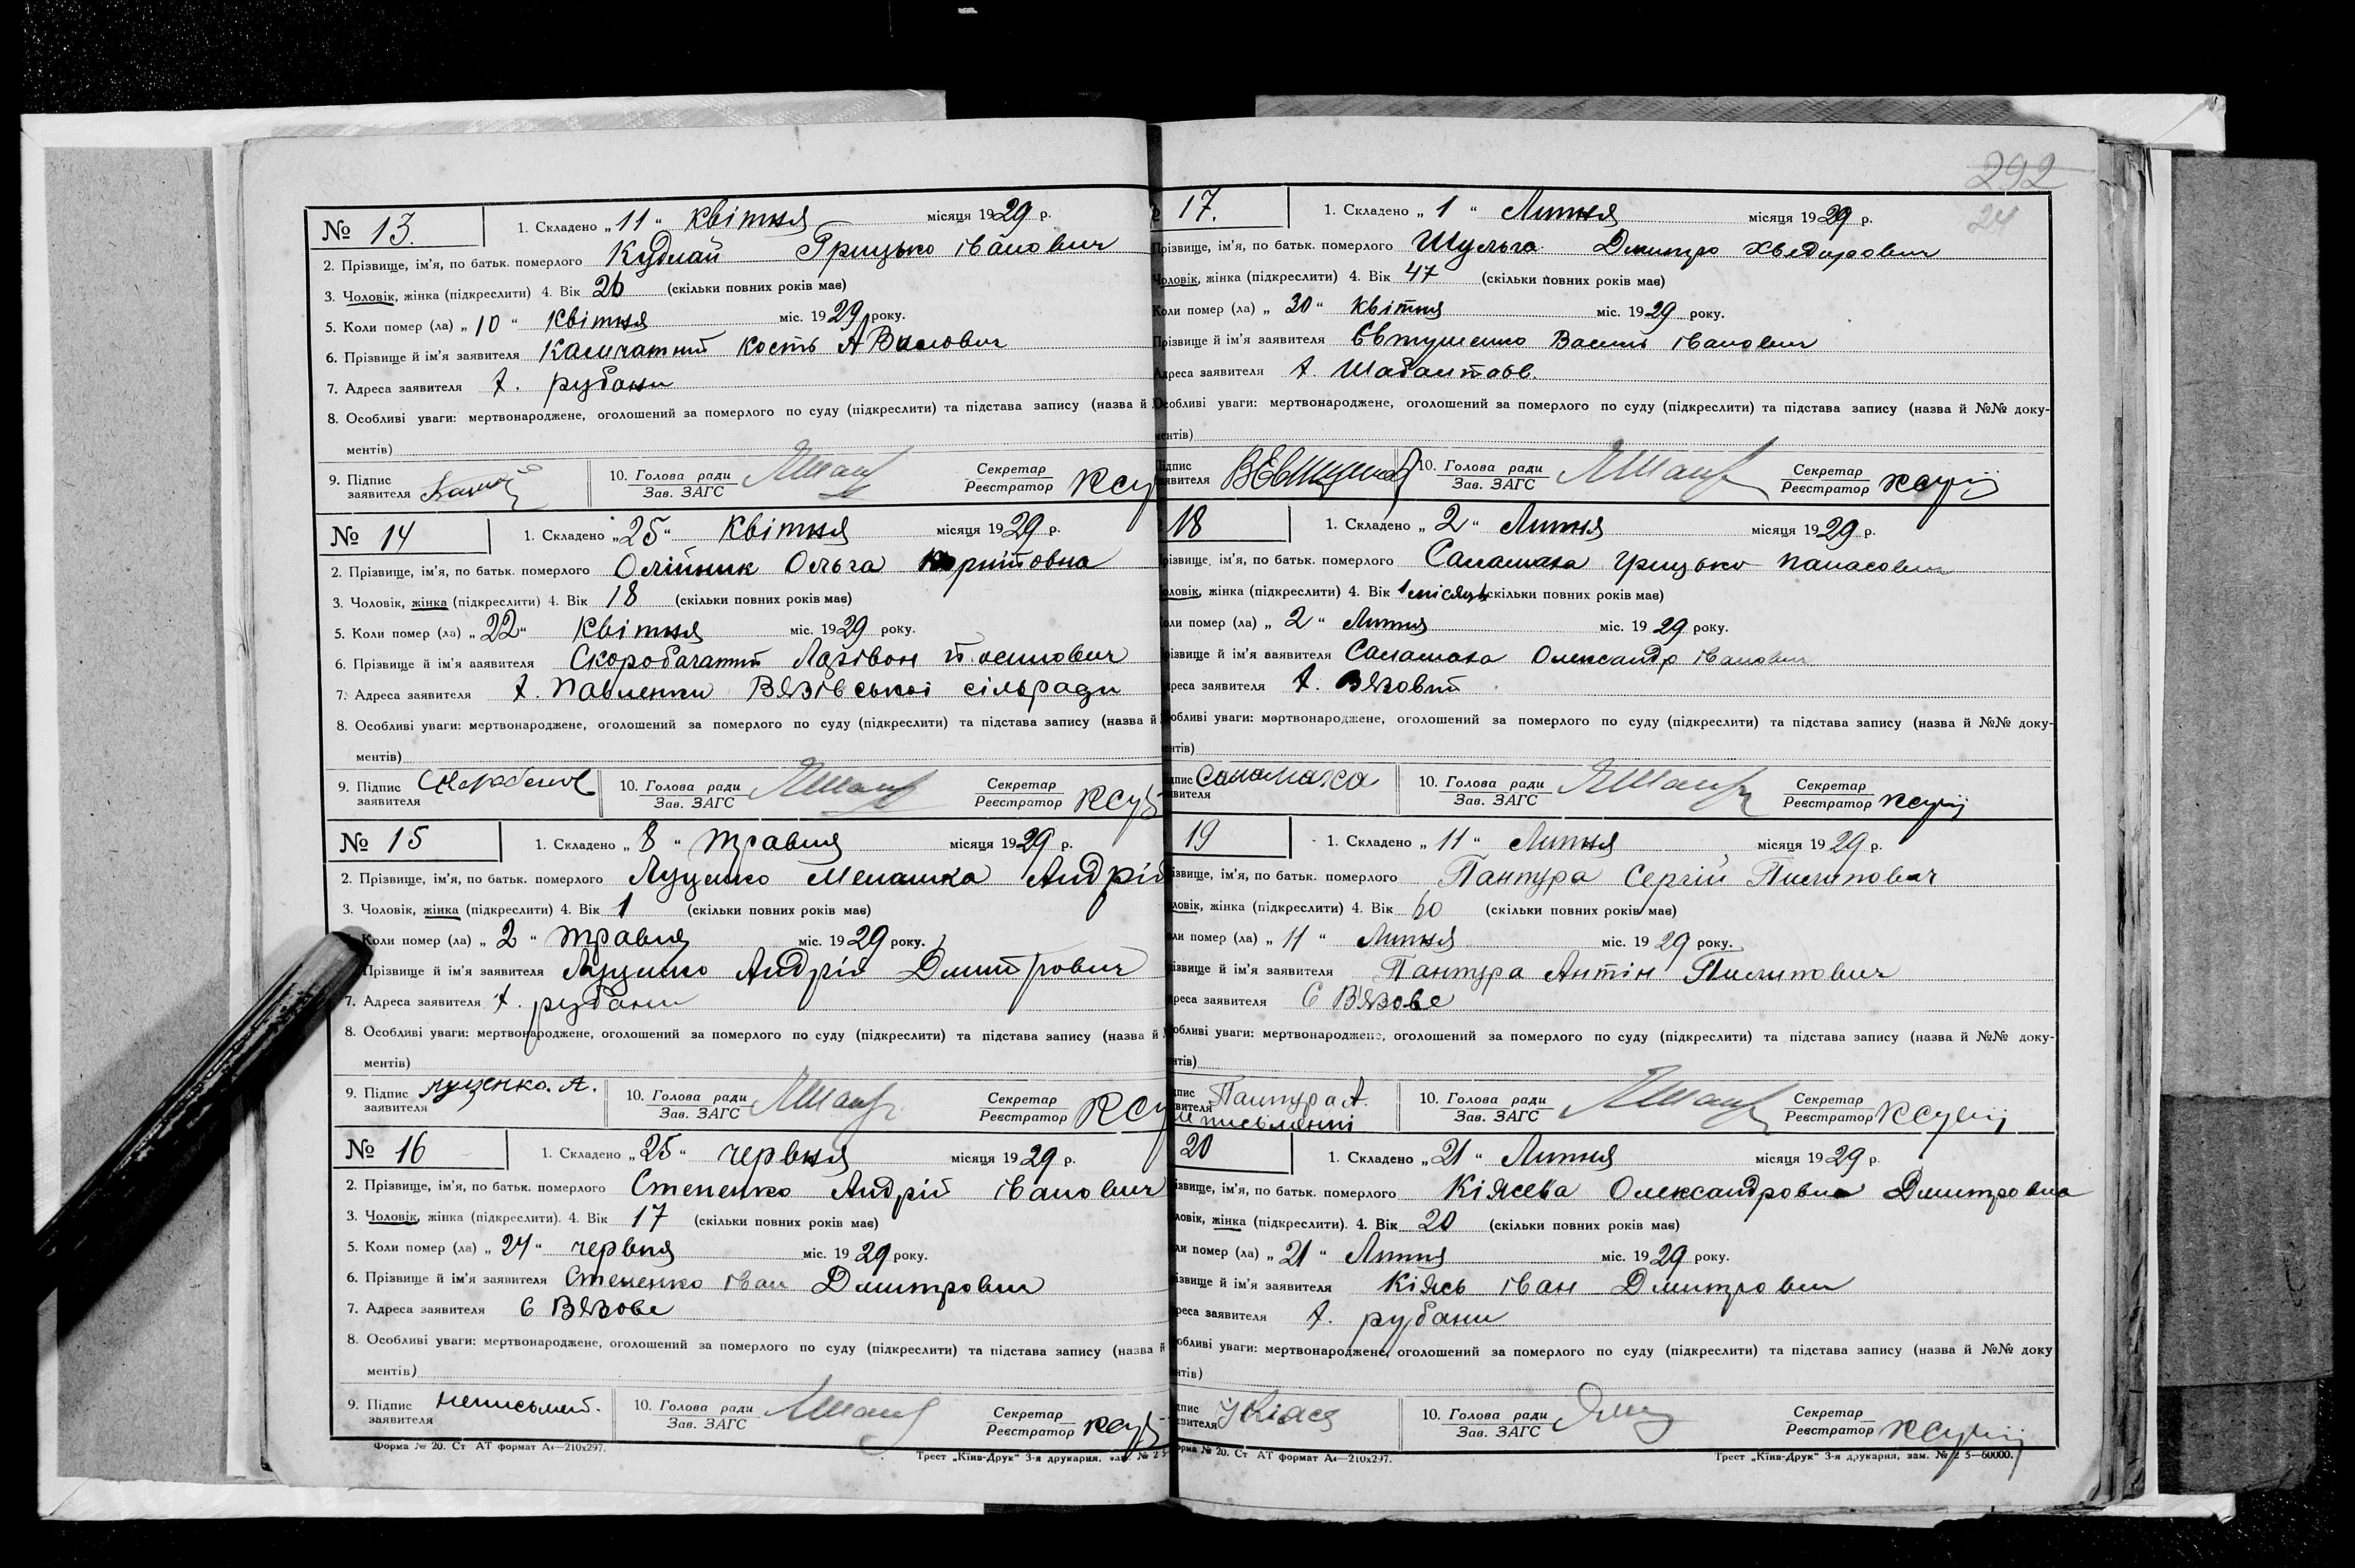 292
24
№ 13.
1. Складено „11“ Квітня місяця 1929 р.
2. Прізвище, ім'я, по батьк. померлого Кудлай Грицько іванович
3. Чоловік, жінка (підкреслити) 4. Вік 26 (скільки повних років має)
5. Коли помер (ла) „10“ Квітня міс. 1929 року.
6. Прізвище й ім'я заявителя Кость
7. Адреса заявителя х. рубани
8. Особливі уваги: мертвонароджене, оголошений за померлого по суду (підкреслити) та підстава запису (назва й
ментів)
9. Підпис заявителя 10. Голова ради Зав. ЗАГС Секретар Реєстратор
№ 14
1. Складено „25“ Квітня місяця 1929 р.
2. Прізвище, ім'я, по батьк. померлого Олійник Ольга
3. Чоловік, жінка (підкреслити) 4. Вік 18 (скільки повних років має)
5. Коли помер (ла) „22“ Квітня міс. 1929 року.
6. Прізвище й ім'я заявителя Скоробагатий Ларівон й.осипович
7. Адреса заявителя х. Павленки Вязівської сільради
8. Особливі уваги: мертвонароджене, оголошений за померлого по суду (підкреслити) та підстава запису (назва й
ментів)
9. Підпис заявителя 10. Голова ради Зав. ЗАГС Секретар Реєстратор
№ 15
1. Складено „8“ травня місяця 1929 р.
2. Прізвище, ім'я, по батьк. померлого Луценко Мелашка Андрій
3. Чоловік, жінка (підкреслити) 4. Вік 1 (скільки повних років має)
Коли помер (ла) „2“ травня міс. 1929 року.
Прізвище й ім'я заявителя Луценко Андрій Дмитрович
7. Адреса заявителя х. рубани
8. Особливі уваги: мертвонароджене, оголошений за померлого по суду (підкреслити) та підстава запису (назва й
ментів)
9. Підпис заявителя луценко. А. 10. Голова ради Зав. ЗАГС Секретар Реєстратор
№ 16
1. Складено „25“ червня місяця 1929 р.
2. Прізвище, ім'я, по батьк. померлого Степенко Андрій іванович
3. Чоловік, жінка (підкреслити). 4. Вік 17 (скільки повних років має)
5. Коли помер (ла) „24“ червня міс. 1929 року.
6. Прізвище й ім'я заявителя Степенко іван Дмитрович
7. Адреса заявителя с Вязове
8. Особливі уваги: мертвонароджене, оголошений за померлого по суду (підкреслити) та підстава запису (назва й
ментів)
9. Підпис заявителя неписьмен. 10. Голова ради Зав. ЗАГС Секретар Реєстратор
Форма № 20. Ст АТ формат А4—210х297.
Трест „Київ-Друк“ 3-я друкарня, зам. № 2 5
17.
1. Складено „1“ Липня місяця 1929 р.
Прізвище, ім'я, по батьк. померлого Шульга Дмитро Хведорович
Чоловік, жінка (підкреслити) 4. Вік 47 (скільки повних років має)
Коли помер (ла) „30“ Квітня міс. 1929 року.
Прізвище й ім'я заявителя Євтушенко Василь іванович
Адреса заявителя х.
Особливі уваги: мертвонароджене, оголошений за померлого по суду (підкреслити) та підстава запису (назва й №№ доку-
ментів)
Підпис заявителя 10. Голова ради Зав. ЗАГС Секретар Реєстратор
18
1. Складено „2“ Липня місяця 1929 р.
Прізвище, ім'я, по батьк. померлого Саламаха грицько панасович
Чоловік, жінка (підкреслити) 4. Вік 1 місяць (скільки повних років має)
Коли помер (ла) „2“ Липня міс. 1929 року.
Прізвище й ім'я заявителя Саламаха Олександр іванович
Адреса заявителя х. Вязовий
Особливі уваги: мертвонароджене, оголошений за померлого по суду (підкреслити) та підстава запису (назва й №№ доку-
ментів)
Підпис заявителя Саламаха 10. Голова ради Зав. ЗАГС Секретар Реєстратор
19
1. Складено „11“ Липня місяця 1929 р.
Прізвище, ім'я, по батьк. померлого Пантура Сергій Пилипович
Чоловік, жінка (підкреслити) 4. Вік 60 (скільки повних років має)
Коли помер (ла) „11“ Липня міс. 1929 року.
Прізвище й ім'я заявителя Пантура Антін Пилипович
Адреса заявителя С Вязове
Особливі уваги: мертвонароджене, оголошений за померлого по суду (підкреслити) та підстава запису (назва й №№ доку-
ментів)
Підпис заявителя Пантура А. 10. Голова ради Зав. ЗАГС Секретар Реєстратор
20
1. Складено „21“ Липня місяця 1929 р.
Прізвище, ім'я, по батьк. померлого Кіясева Олександровна Дмитровна
Чоловік, жінка (підкреслити). 4. Вік 20 (скільки повних років має)
Коли помер (ла) „21“ Липня міс. 1929 року.
Прізвище й ім'я заявителя Кіясь іван Дмитрович
Адреса заявителя х. рубани
Особливі уваги: мертвонароджене, оголошений за померлого по суду (підкреслити) та підстава запису (назва й №№ доку
ментів)
Підпис заявителя 10. Голова ради Зав. ЗАГС Секретар Реєстратор
Форма № 20. Ст АТ формат А4—210х297.
Трест „Київ-Друк“ 3-я друкарня, зам. № 2 5—60000.